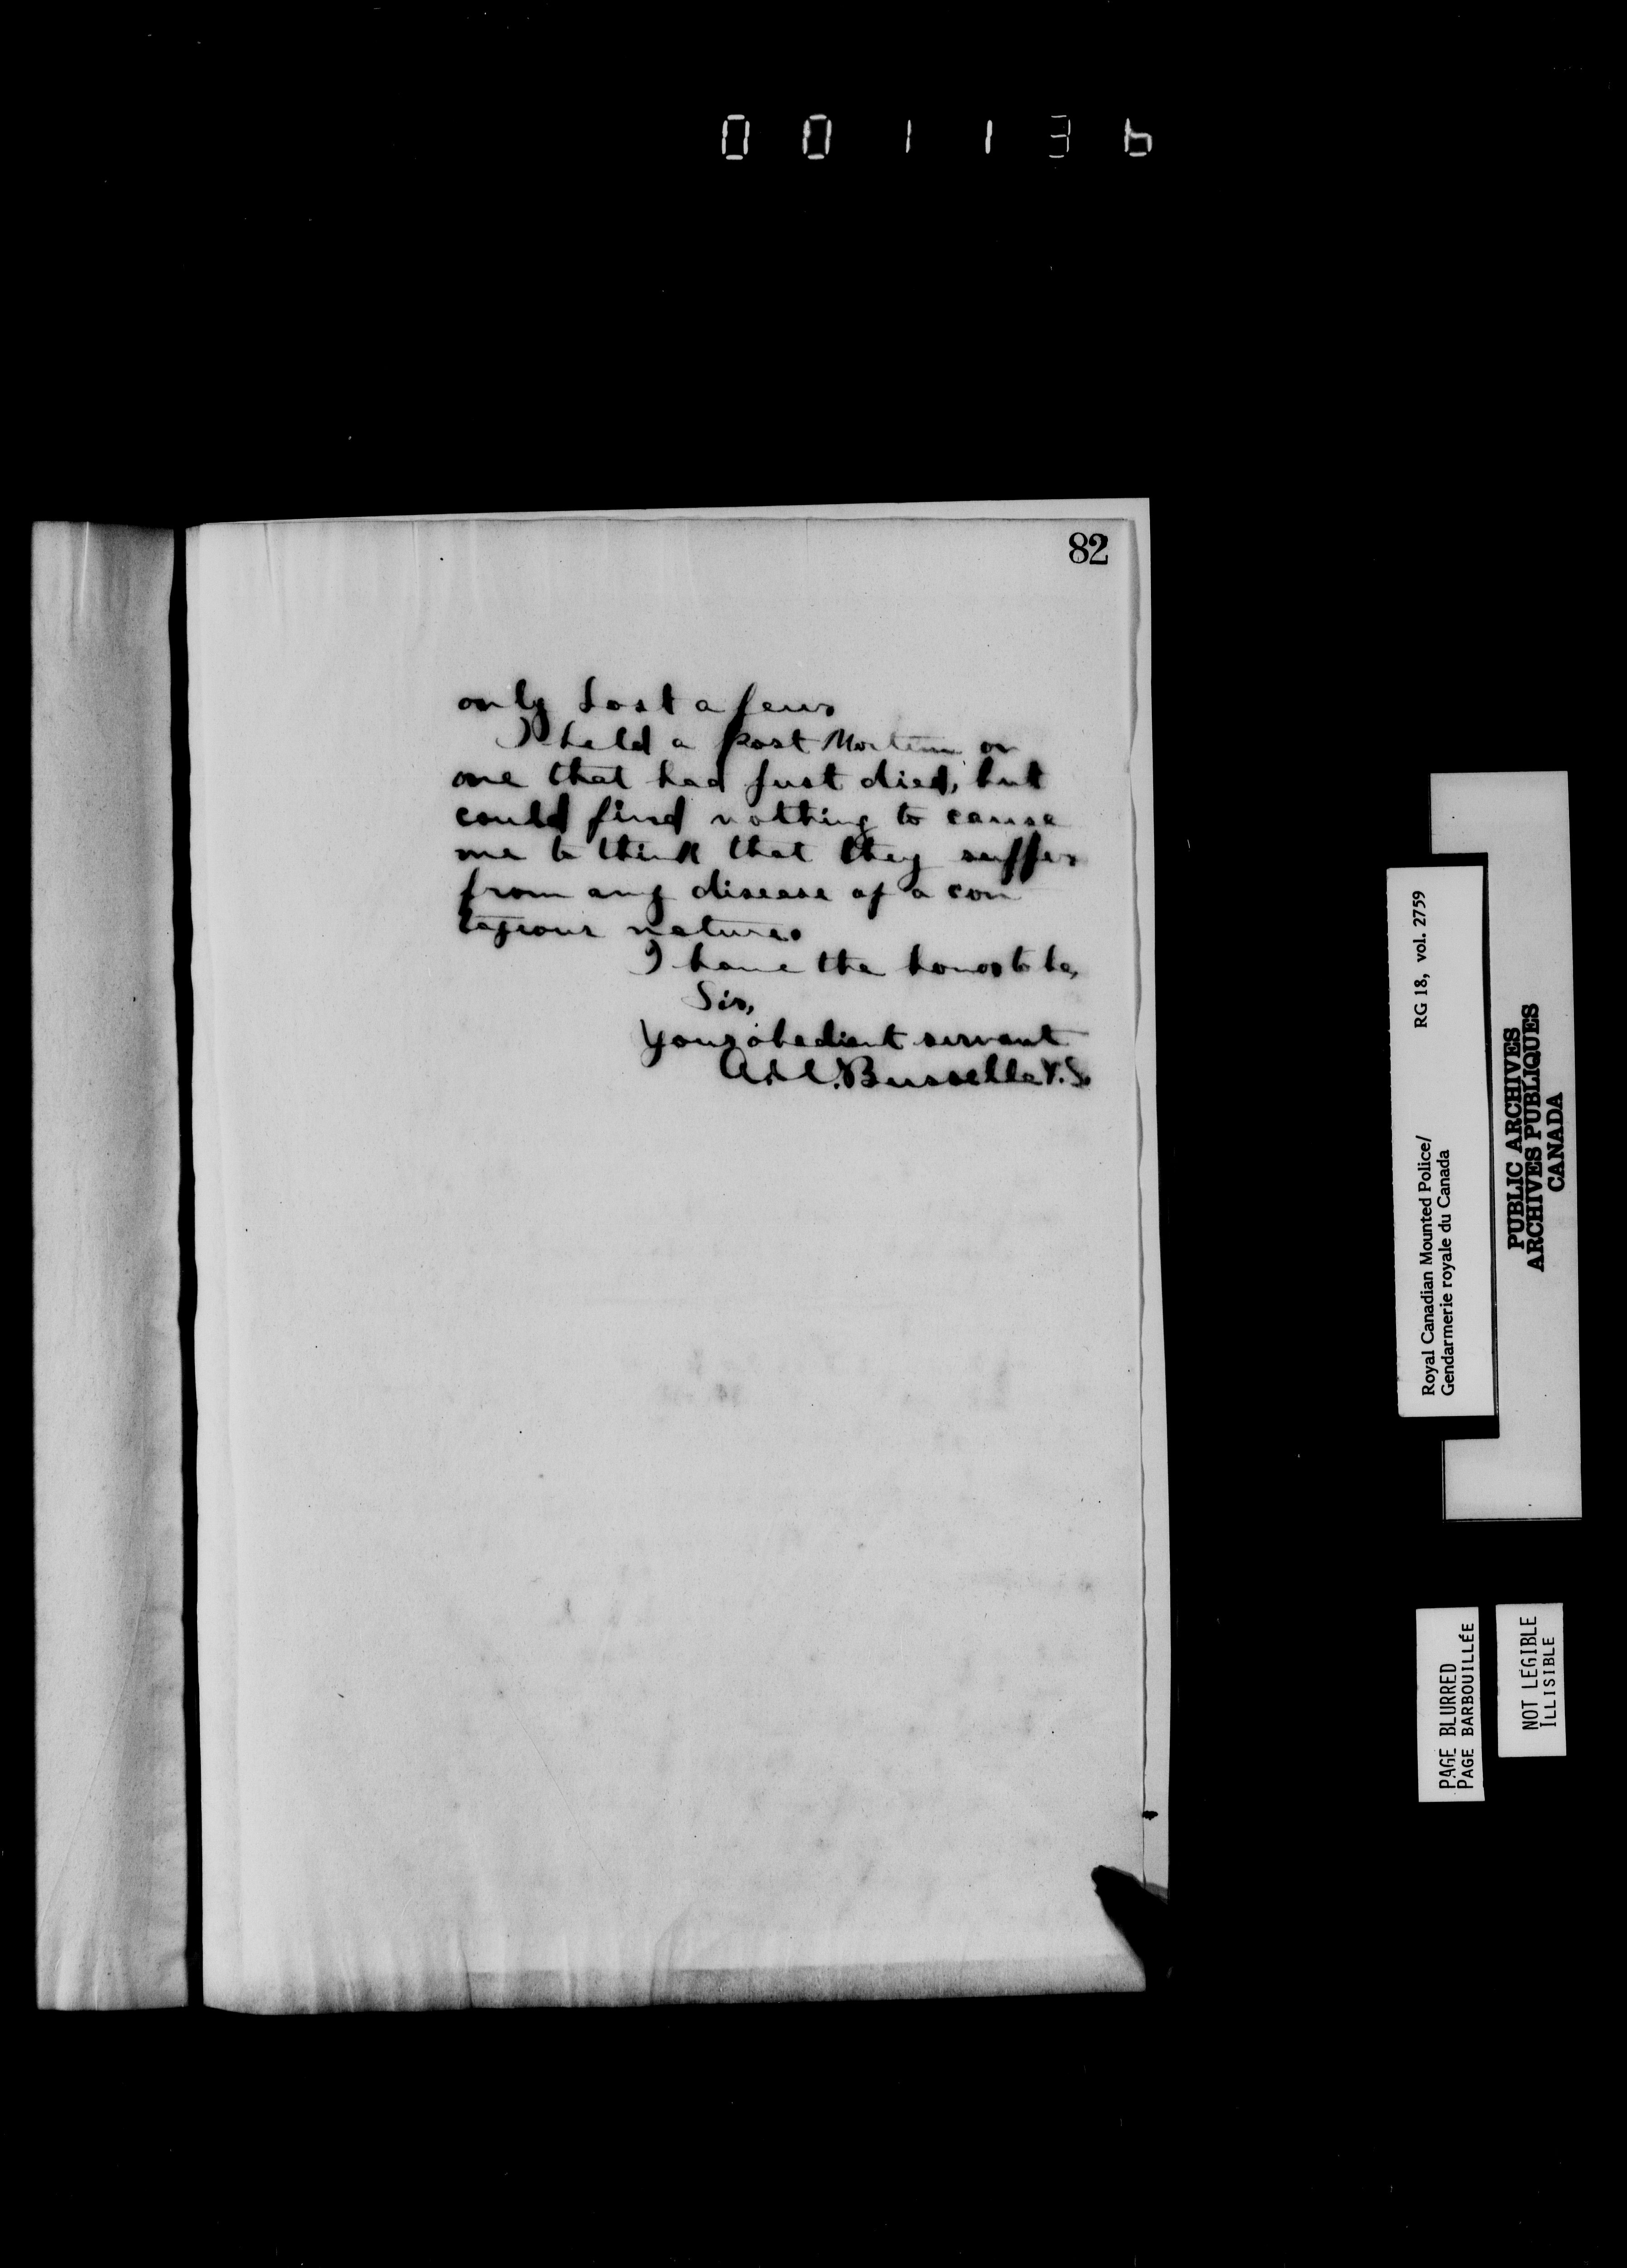 001136
82
only lost a few
I held a post Mortem on
one that had just died, but
could find nothing to cause
me to think that they suffer
from any disease of a con
tagious nature.
I have the honor to be,
Sir,
Your obedient servant
Bussell V.S.
RG 18, vol. 2759
Royal Canadian Mounted Police/
Gendarmerie royale du Canada
PUBLIC ARCHIVES
ARCHIVES PUBLIQUES
CANADA
PAGE BLURRED
PAGE BARBOUILLÉE
NOT LEGIBLE
ILLISIBLE